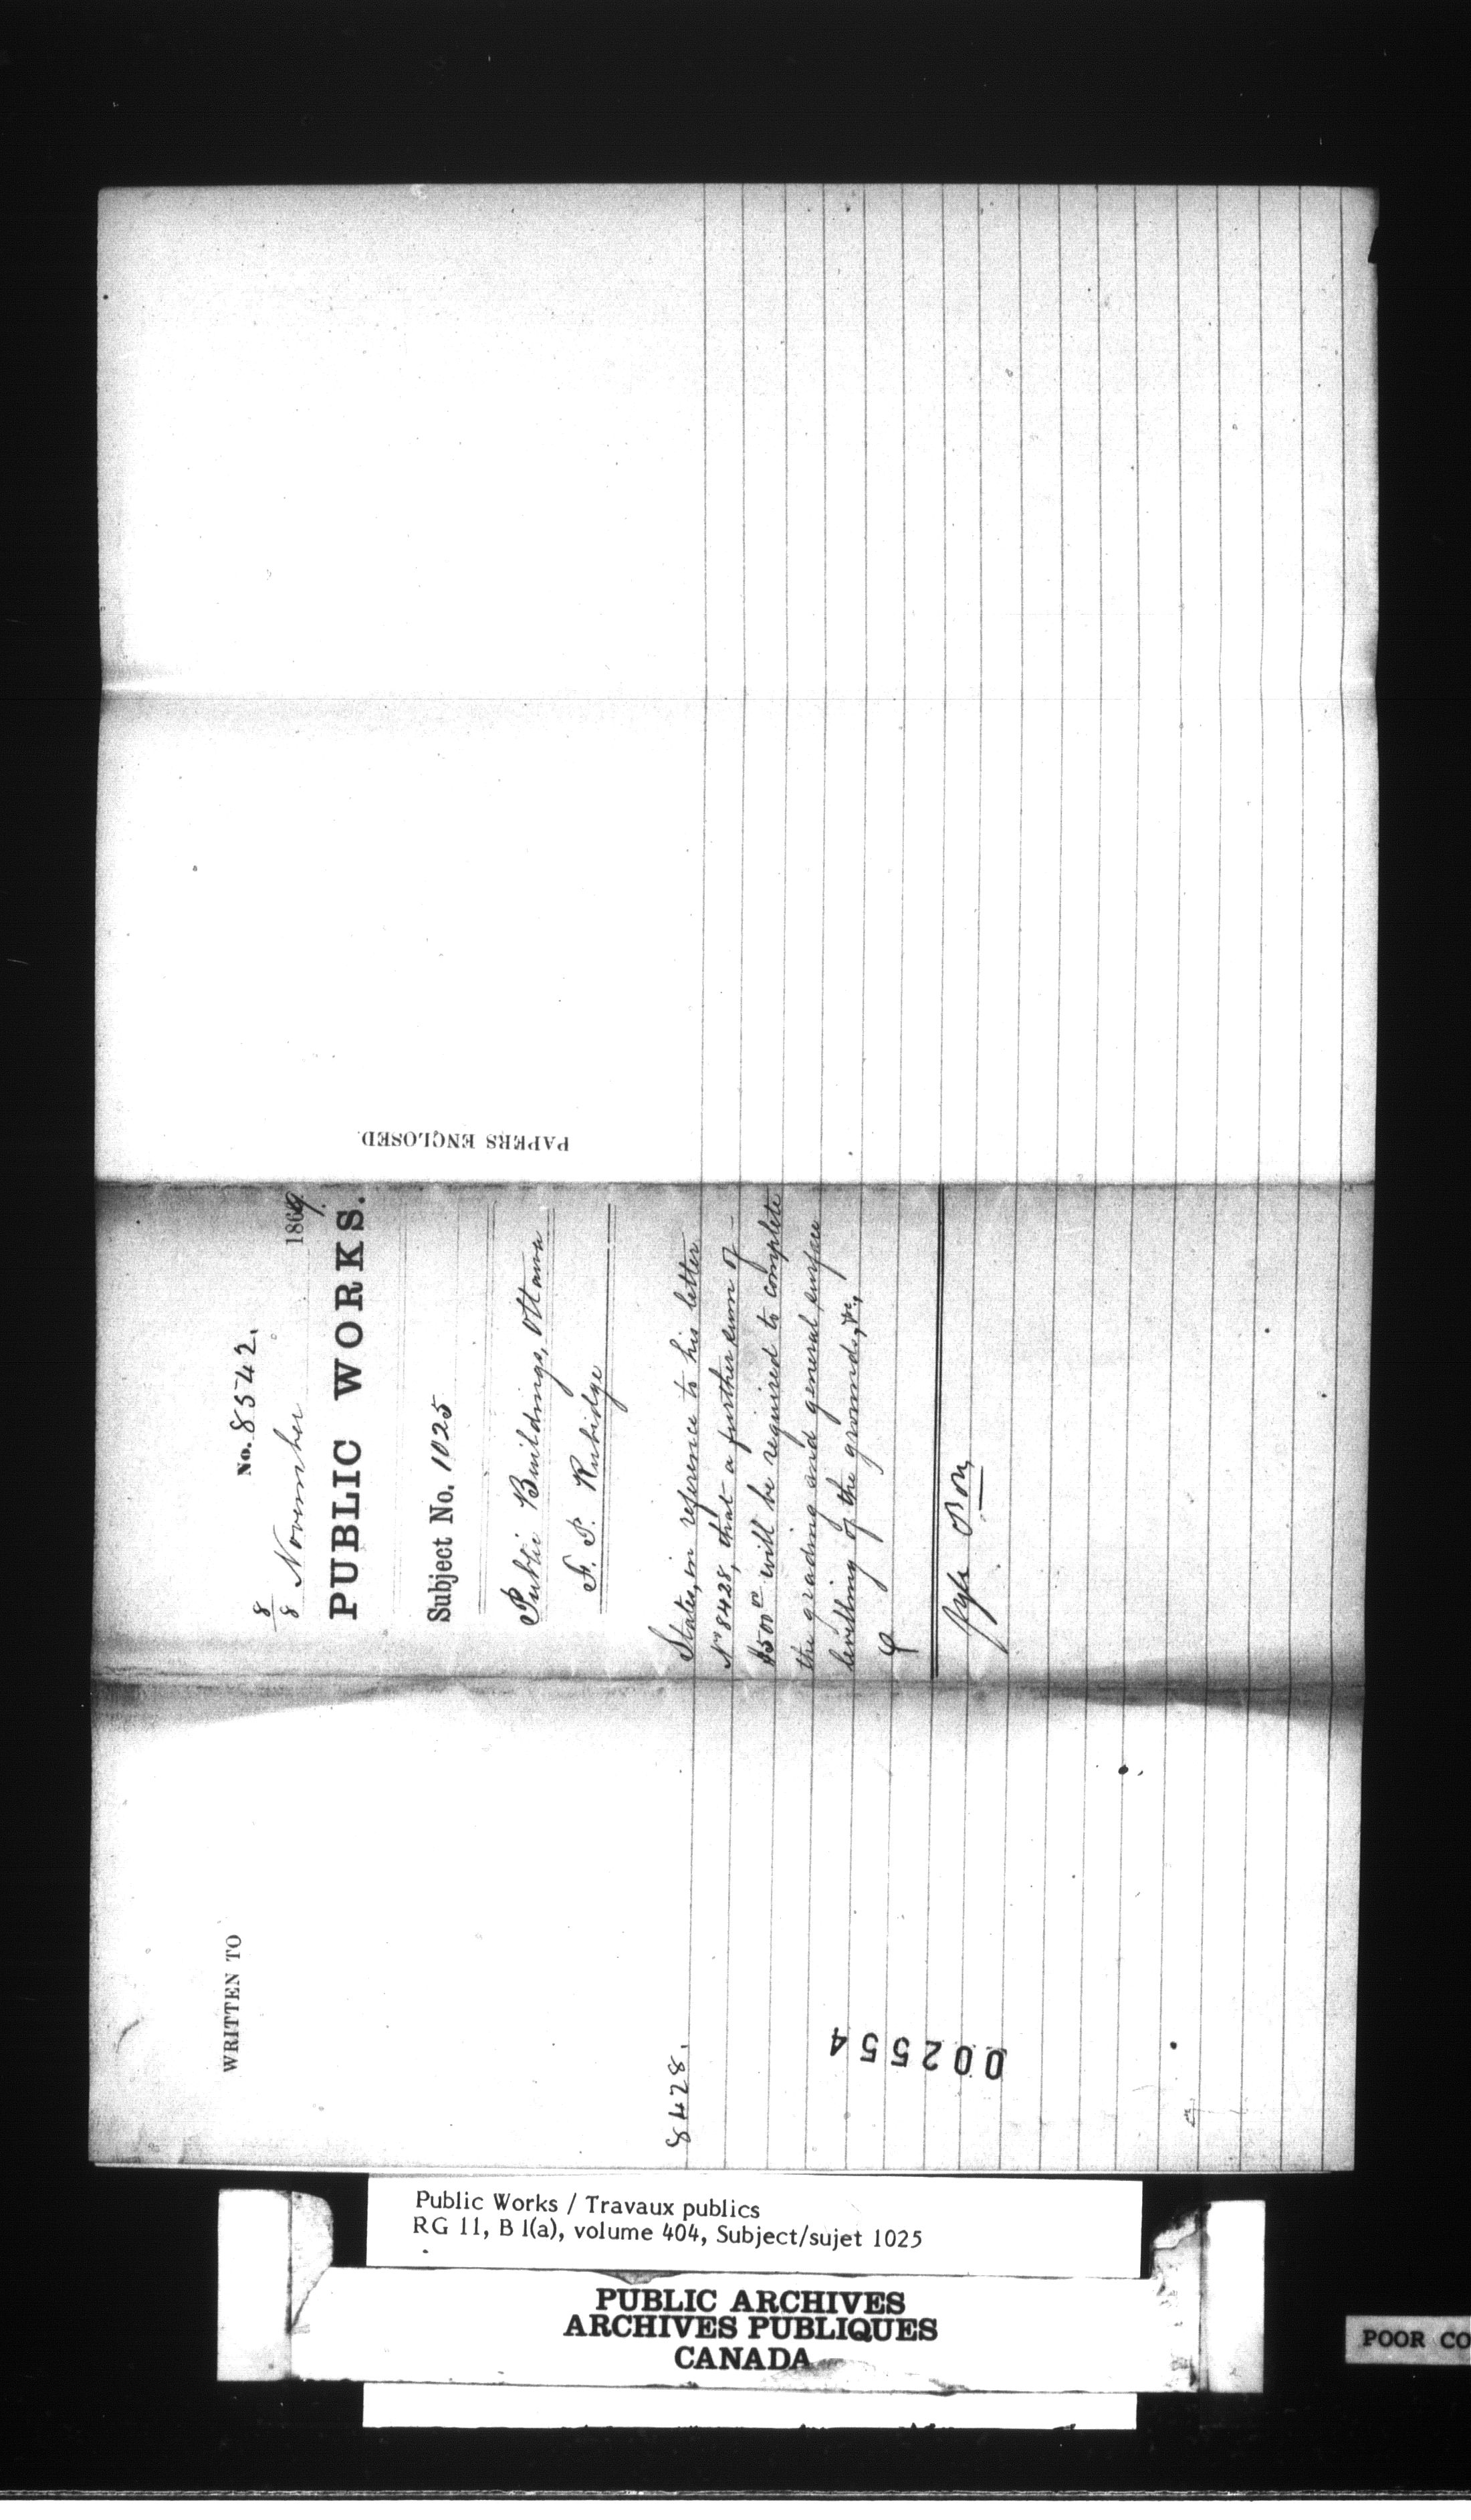 No. 8542.
8
8 November 1869.
PUBLIC WORKS.
Subject No. 1025
Public Buildings, Ottawa
F. P. Rubidge
States, in reference to his letter
No 8428, that a further sum of
$500 will be required to complete
the grading and general surface
levelling of the grounds, &c,
PAPERS ENCLOSED.
WRITTEN TO
8428.
002554
Public Works / Travaux publics
RG 11, B 1(a), volume 404, Subject/sujet 1025
PUBLIC ARCHIVES
ARCHIVES PUBLIQUES
CANADA
POOR CO